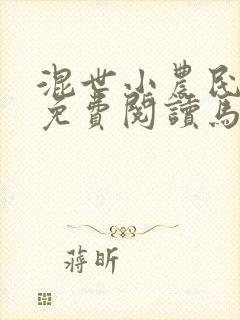 混世小農民
免費閱讀馬
蔣昕